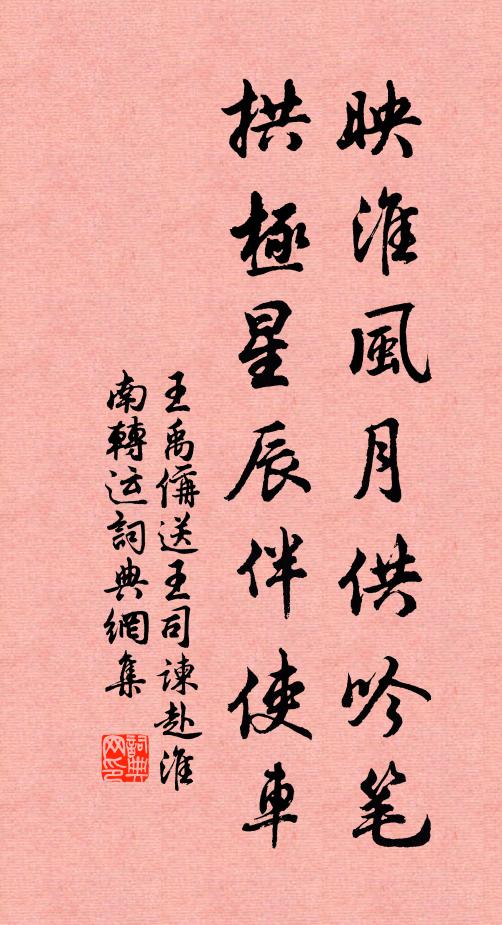 映淮風月供吟笔
拱極星辰伴使車
王禹偁送王司諫赴淮
南轉运詞典網集
詞典
网印